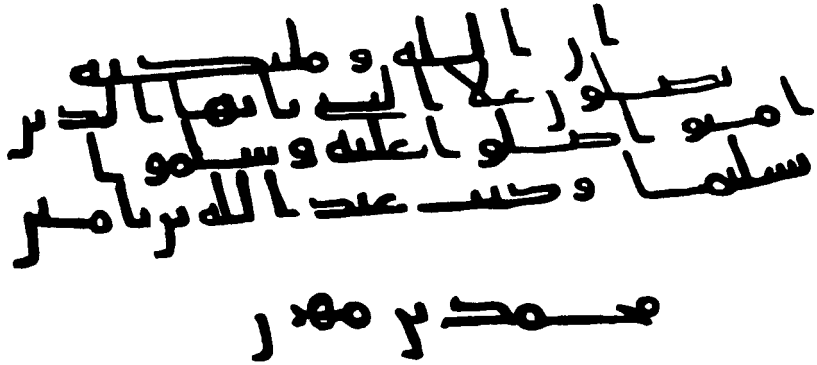 ان الله و ملئكته
يصلون على النبي يايها الذين
امنوا صلوا عليه وسلموا
تسليما وكتب عبد الله بن يامين
محمد بن